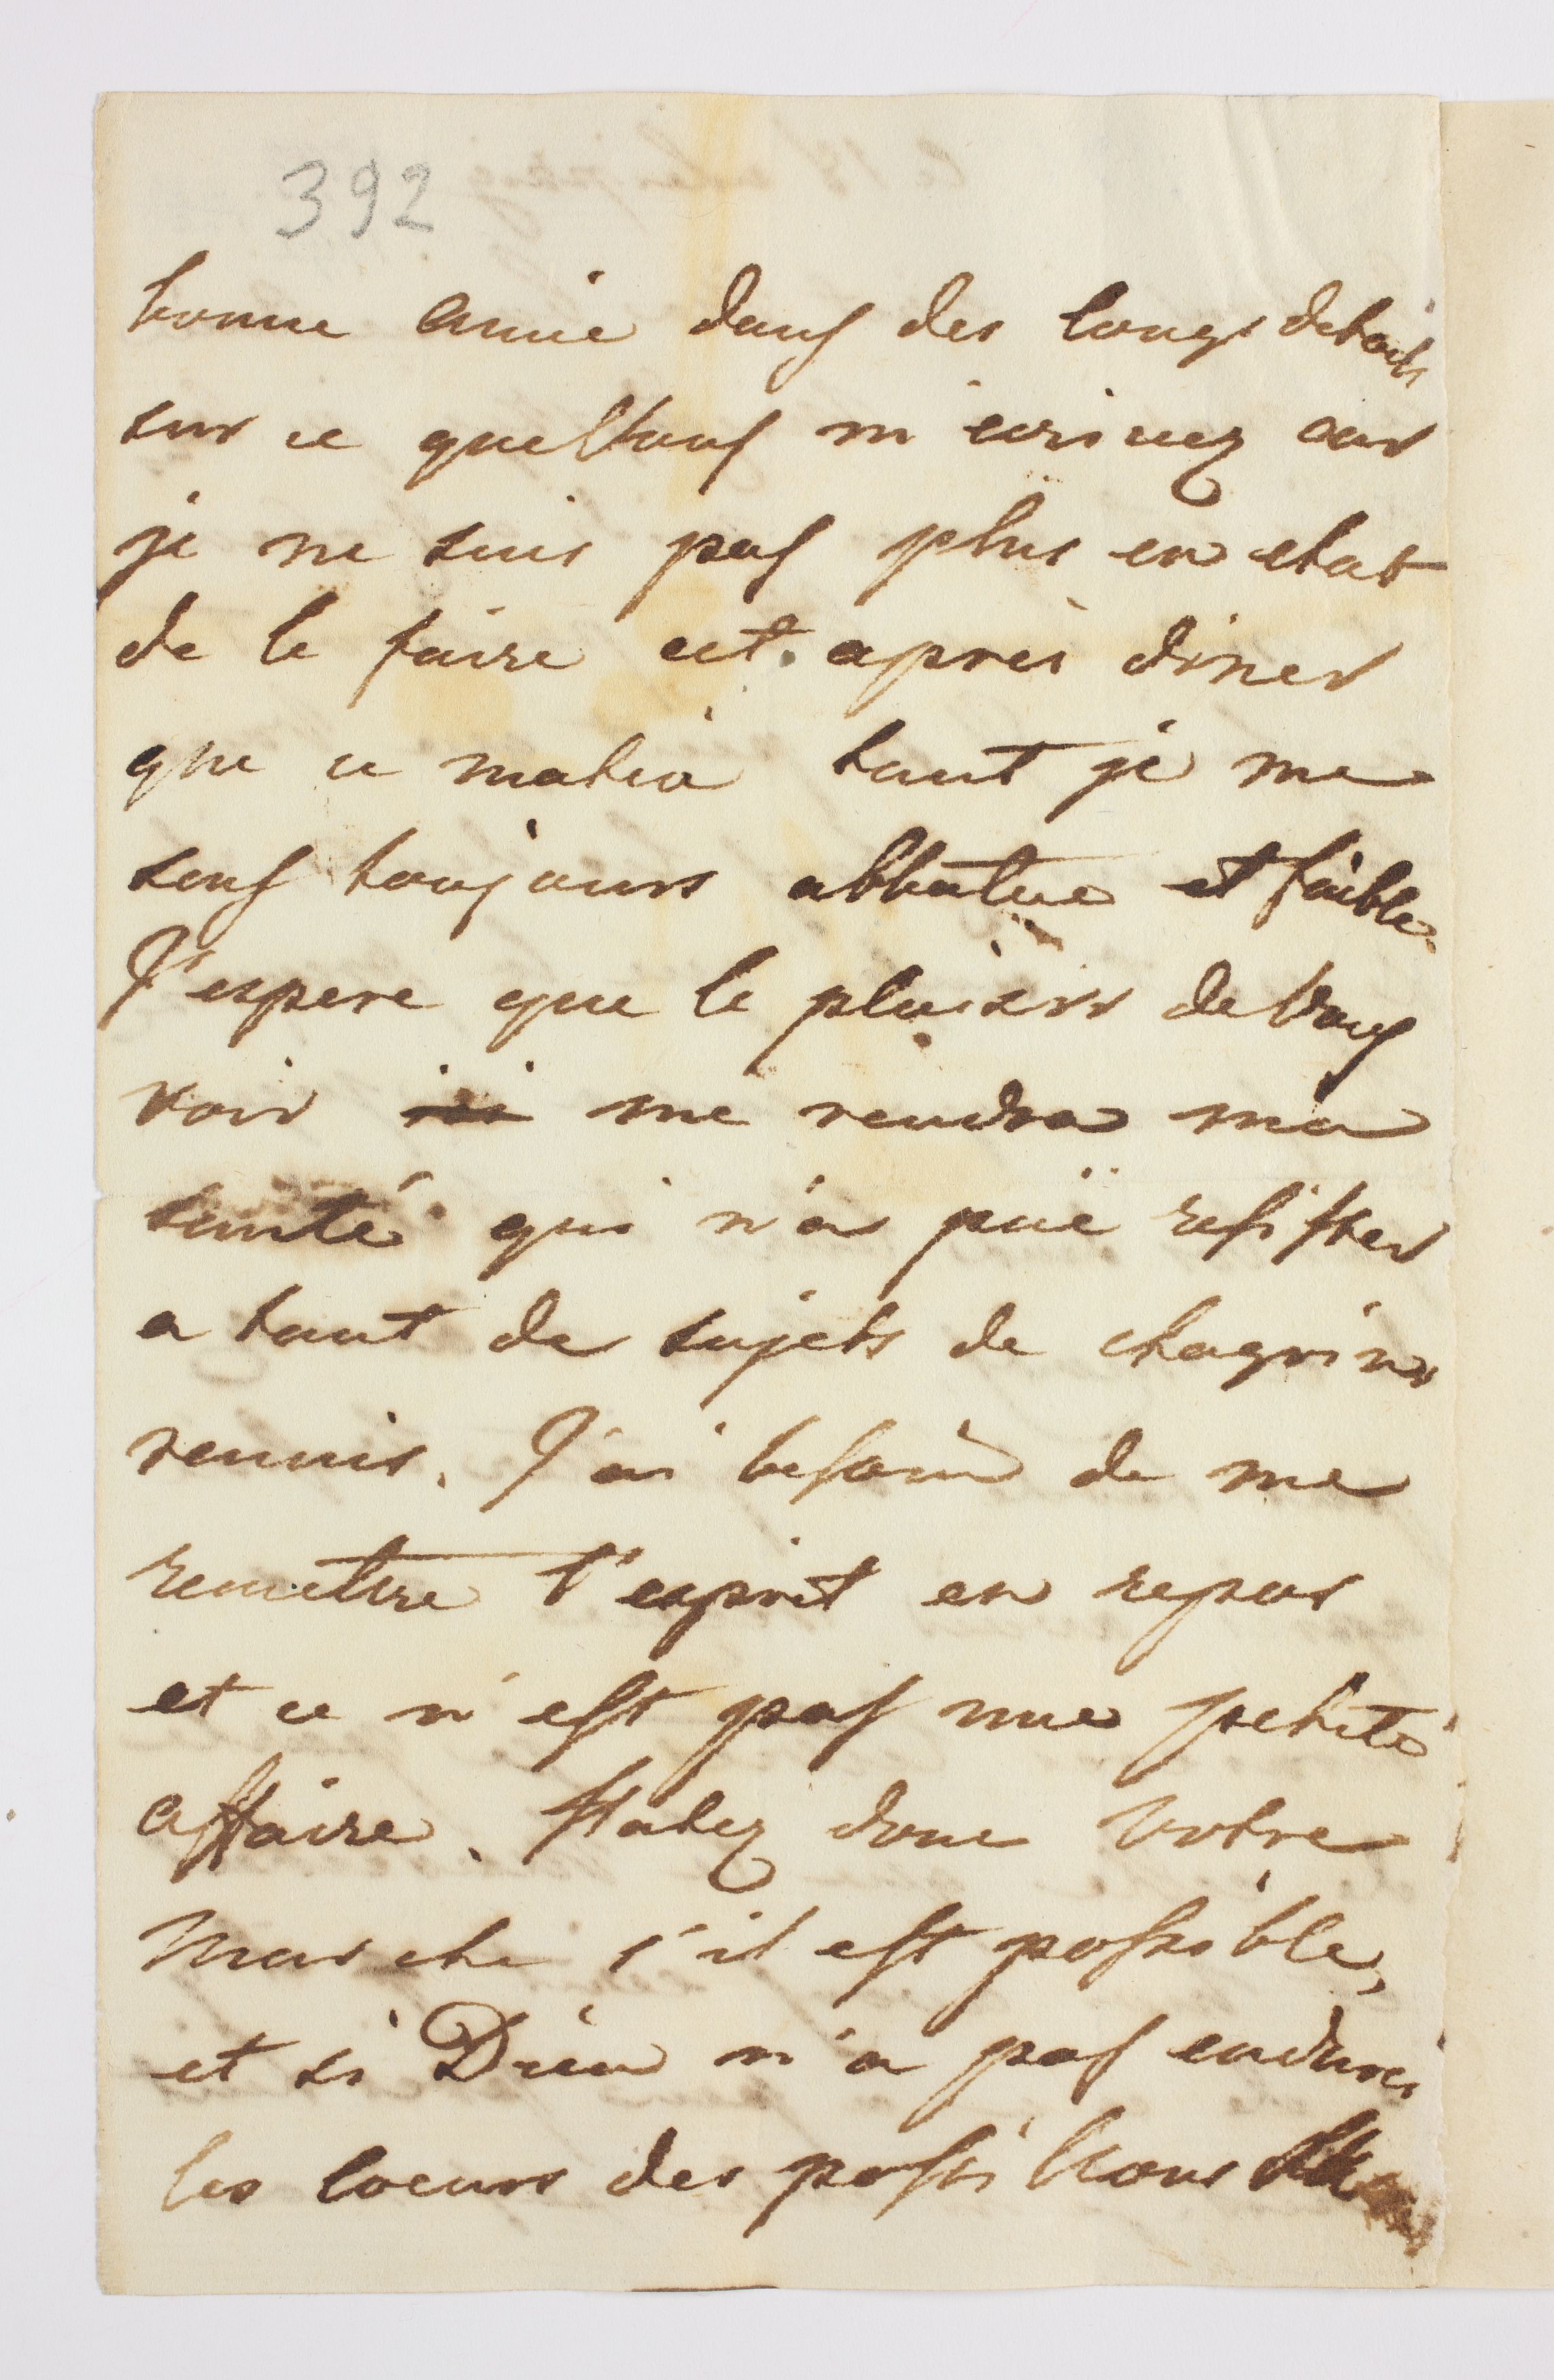 392
bonne amie dans des longs details
sur ce que Vous m'ecrivez car
je ne suis pas plus en etat
de le faire cet après diner
que ce matin tant je me
sens toujours abbatue et faible.
J'espere que le plaisir de Vous
voir ici me rendra ma
santé qui n'a puë resister
a tant de sujets de chagrins
reunis. J'ai besoin de me
remettre l'esprit en repos
et ce n'est pas une petite
affaire. Hatez donc Votre
marche s'il est possible,
et si Dieu n'a pas endurci
les coeurs des postillons